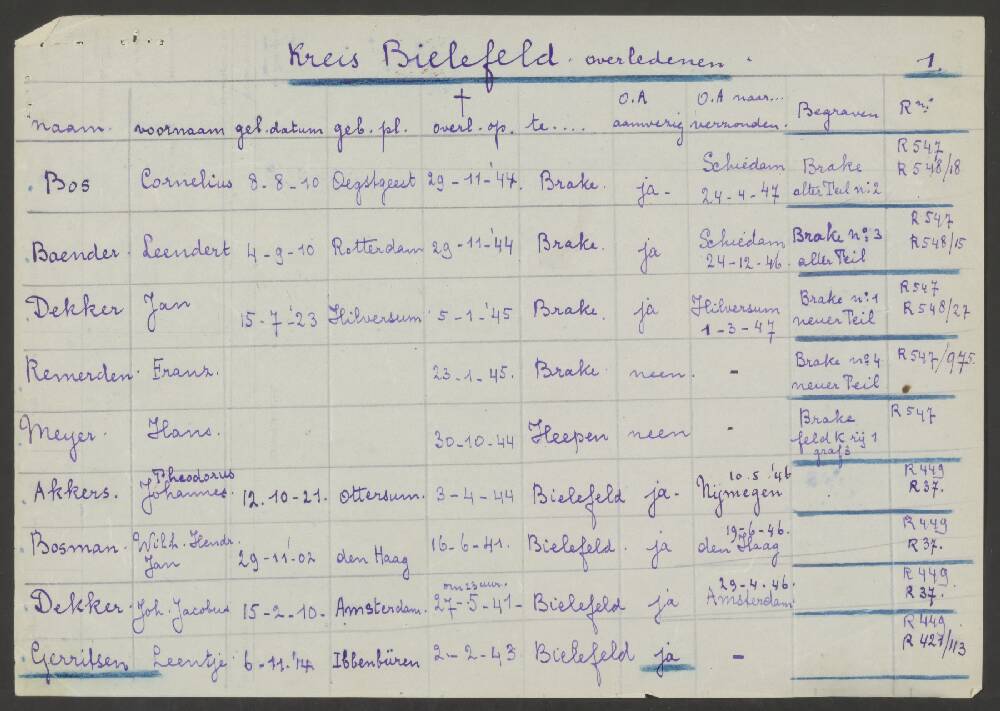 Kreis Bielefeld. overledenen. 1.
naam. voornaam geb. datum geb. pl. † overl. op. te.... O.A aanwezig O.A naar... verzonden. Begraven R nr:
Bos Cornelius 8-8-10 Oegstgeest 29-11-'44. Brake. ja- Schiedam 24-4-47 Brake alter Teil nº:2 R547 R548/18
Baender. Leendert 4-9-10 Rotterdam 29-11-'44 Brake. ja Schiedam 24-12-46. Brake nº:3 alter Teil R547 R548/15
Dekker Jan 15-7-'23 Hilversum 5-1-'45 Brake. ja Hilversum 1-3-47 Brake nº:1 neuer Teil R547 R548/27
Remerden. Franz. 23-1-45. Brake. neen. - Brake nº:4 neuer Teil R547/975.
Meyer. Hans. 30-10-44 Heepen neen - Brake feld K rij 1 graf 3 R547
Akkers. Theodorus Johannes. 12.10-21. Ottersum. 3-4-44 Bielefeld ja- 10.5.'46 Nijmegen R449 R37.
Bosman. Wilh. Hendr. Jan 29-11-'02 den Haag 16-6-41. Bielefeld. ja 19-6-46. den Haag R449 R37.
Dekker. Joh. Jacobus 15-2-10. Amsterdam. om 23 uur. 27-5-41- Bielefeld ja 29-4.46. Amsterdam R449. R37.
Gerritsen Leentje 6-11-'14 Ibbenbüren 2-2-43 Bielefeld ja - R449. R427/113